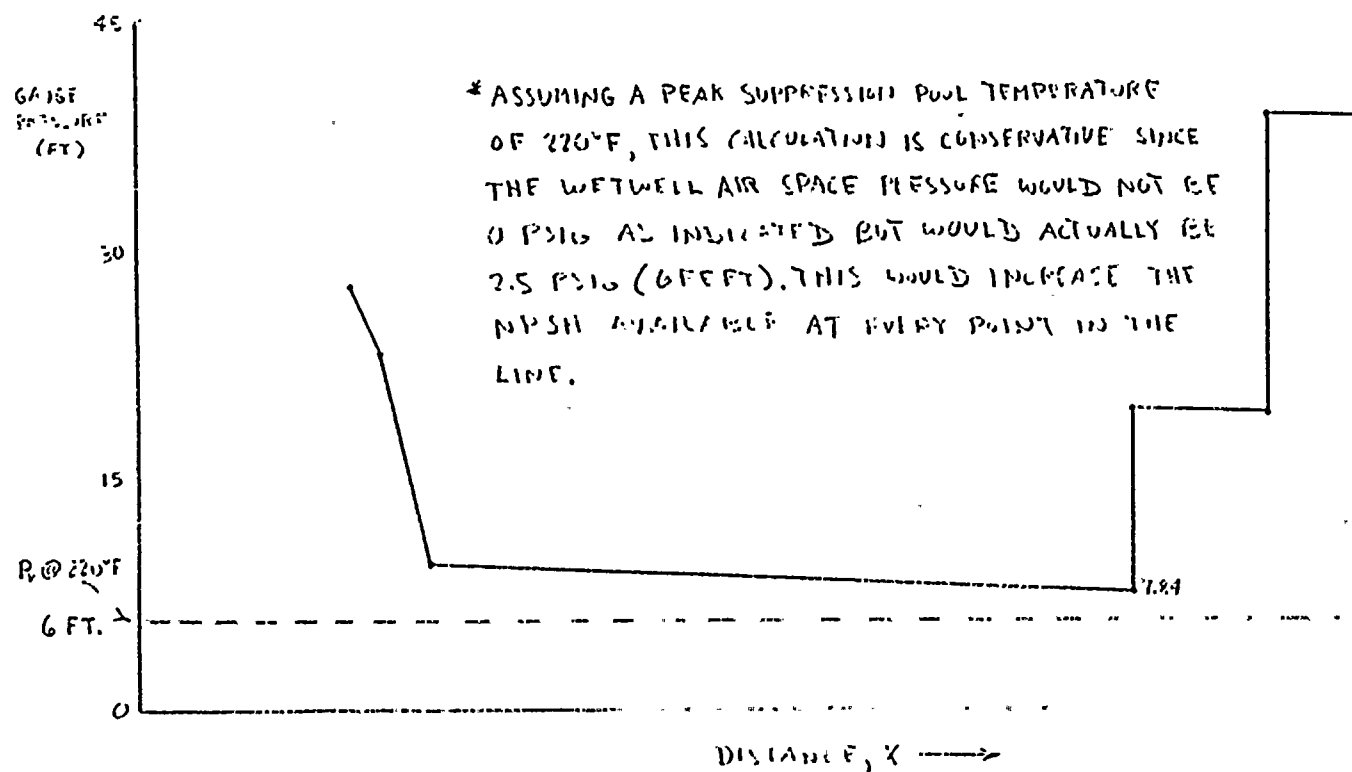 45
GAUGE
PRESSURE
(FT)
* ASSUMING A PEAK SUPPRESSION POOL TEMPERATURE
OF 220°F, THIS CALCULATION IS CONSERVATIVE SINCE
THE WETWELL AIR SPACE PRESSURE WOULD NOT BE
0 PSIG AS INDICATED BUT WOULD ACTUALLY BE
2.5 PSIG (6 FEET). THIS WOULD INCREASE THE
NPSH AVAILABLE AT EVERY POINT IN THE
LINE.
30
15
Pv @ 220°F
6 FT.
7.84
0
DISTANCE, X